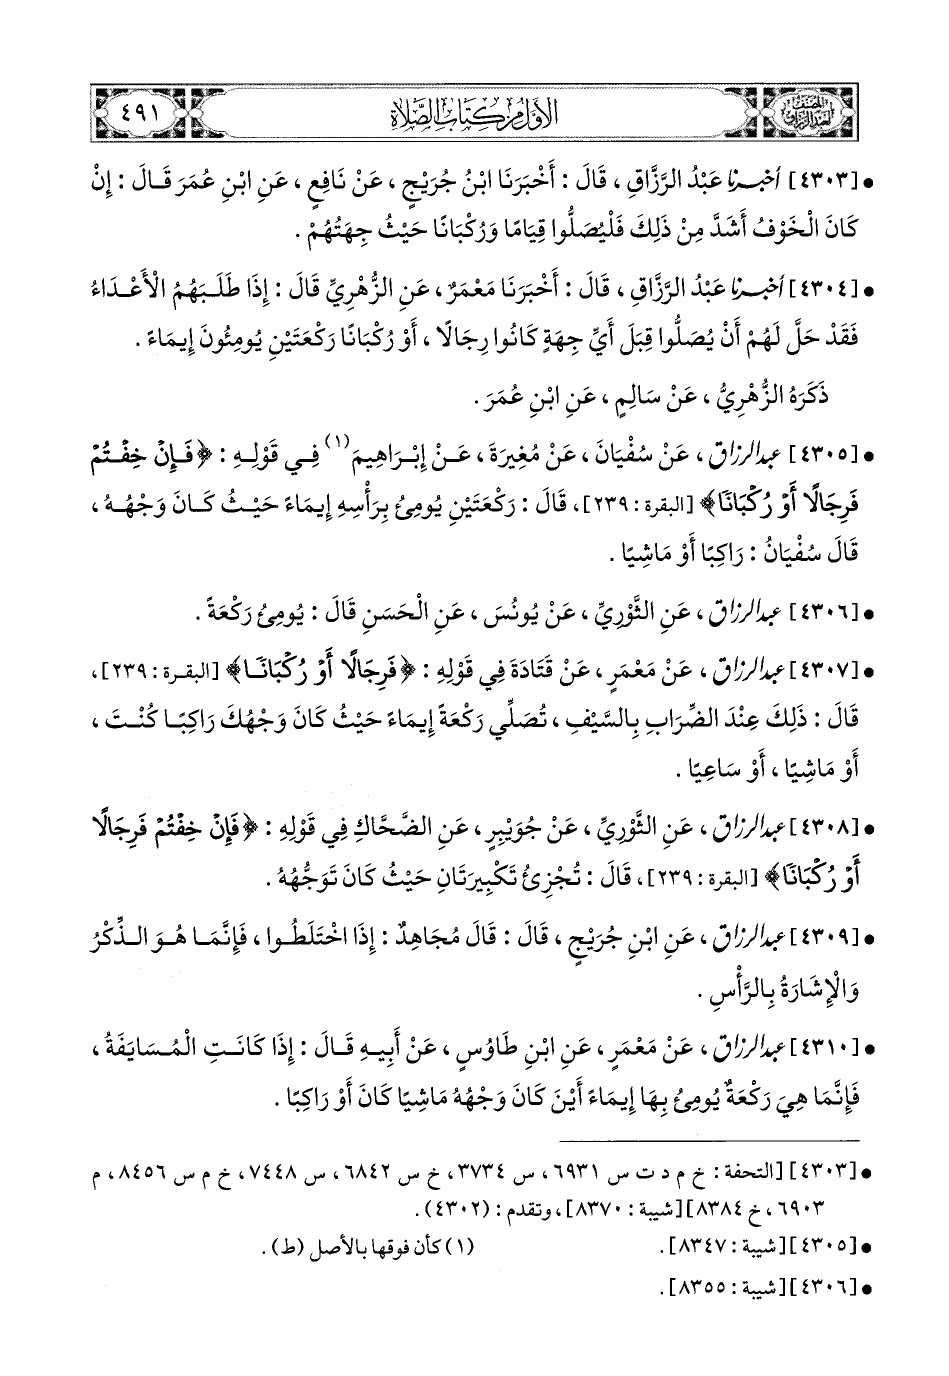 المصنف لعبد الرزاق
الأول من كتاب الصلاة
٤٩١
• [٤٣٠٣] أخبرنا عَبْدُ الرَّزَّاقِ، قَالَ: أَخْبَرَنَا ابْنُ جُرَيْجٍ، عَنْ نَافِعٍ، عَنِ ابْنِ عُمَرَ قَالَ: إِنْ
كَانَ الْخَوْفُ أَشَدَّ مِنْ ذَلِكَ فَلْيُصَلُّوا قِيَامًا وَرُكْبَانًا حَيْثُ جِهَتُهُمْ.
• [٤٣٠٤] أخبرنا عَبْدُ الرَّزَّاقِ، قَالَ: أَخْبَرَنَا مَعْمَرٌ، عَنِ الزُّهْرِيِّ قَالَ: إِذَا طَلَبَهُمُ الْأَعْدَاءُ
فَقَدْ حَلَّ لَهُمْ أَنْ يُصَلُّوا قِبَلَ أَيِّ جِهَةٍ كَانُوا رِجَالًا، أَوْ رُكْبَانًا رَكْعَتَيْنِ يُومِئُونَ إِيمَاءً.
ذَكَرَهُ الزُّهْرِيُّ، عَنْ سَالِمٍ، عَنِ ابْنِ عُمَرَ.
• [٤٣٠٥] عبد الرزاق، عَنْ سُفْيَانَ، عَنْ مُغِيرَةَ، عَنْ إِبْرَاهِيمَ(١) فِي قَوْلِهِ: ﴿فَإِنْ خِفْتُمْ
فَرِجَالًا أَوْ رُكْبَانًا﴾ [البقرة: ٢٣٩]، قَالَ: رَكْعَتَيْنِ يُومِئُ بِرَأْسِهِ إِيمَاءً حَيْثُ كَانَ وَجْهُهُ،
قَالَ سُفْيَانُ: رَاكِبًا أَوْ مَاشِيًا.
• [٤٣٠٦] عبد الرزاق، عَنِ الثَّوْرِيِّ، عَنْ يُونُسَ، عَنِ الْحَسَنِ قَالَ: يُومِئُ رَكْعَةً.
• [٤٣٠٧] عبد الرزاق، عَنْ مَعْمَرٍ، عَنْ قَتَادَةَ فِي قَوْلِهِ: ﴿فَرِجَالًا أَوْ رُكْبَانًا﴾ [البقرة: ٢٣٩]،
قَالَ: ذَلِكَ عِنْدَ الضِّرَابِ بِالسَّيْفِ، تُصَلِّي رَكْعَةً إِيمَاءً حَيْثُ كَانَ وَجْهُكَ رَاكِبًا كُنْتَ،
أَوْ مَاشِيًا، أَوْ سَاعِيًا.
• [٤٣٠٨] عبد الرزاق، عَنِ الثَّوْرِيِّ، عَنْ جُوَيْبِرٍ، عَنِ الضَّحَّاكِ فِي قَوْلِهِ: ﴿فَإِنْ خِفْتُمْ فَرِجَالًا
أَوْ رُكْبَانًا﴾ [البقرة: ٢٣٩]، قَالَ: تُجْزِئُ تَكْبِيرَتَانِ حَيْثُ كَانَ تَوَجُّهُهُ.
• [٤٣٠٩] عبد الرزاق، عَنِ ابْنِ جُرَيْجٍ، قَالَ: قَالَ مُجَاهِدٌ: إِذَا اخْتَلَطُوا، فَإِنَّمَا هُوَ الذِّكْرُ
وَالْإِشَارَةُ بِالرَّأْسِ.
• [٤٣١٠] عبد الرزاق، عَنْ مَعْمَرٍ، عَنِ ابْنِ طَاوُسٍ، عَنْ أَبِيهِ قَالَ: إِذَا كَانَتِ الْمُسَايَفَةُ،
فَإِنَّمَا هِيَ رَكْعَةٌ يُومِئُ بِهَا إِيمَاءً أَيْنَ كَانَ وَجْهُهُ مَاشِيًا كَانَ أَوْ رَاكِبًا.
• [٤٣٠٣] [التحفة: خ م د ت س ٦٩٣١، س ٣٧٣٤، خ س ٦٨٤٢، س ٧٤٤٨، خ م س ٨٤٥٦، م
٦٩٠٣، خ ٨٣٨٤] [شيبة: ٨٣٧٠]، وتقدم: (٤٣٠٢).
• [٤٣٠٥] [شيبة: ٨٣٤٧]. (١) كأن فوقها بالأصل (ط).
• [٤٣٠٦] [شيبة: ٨٣٥٥].